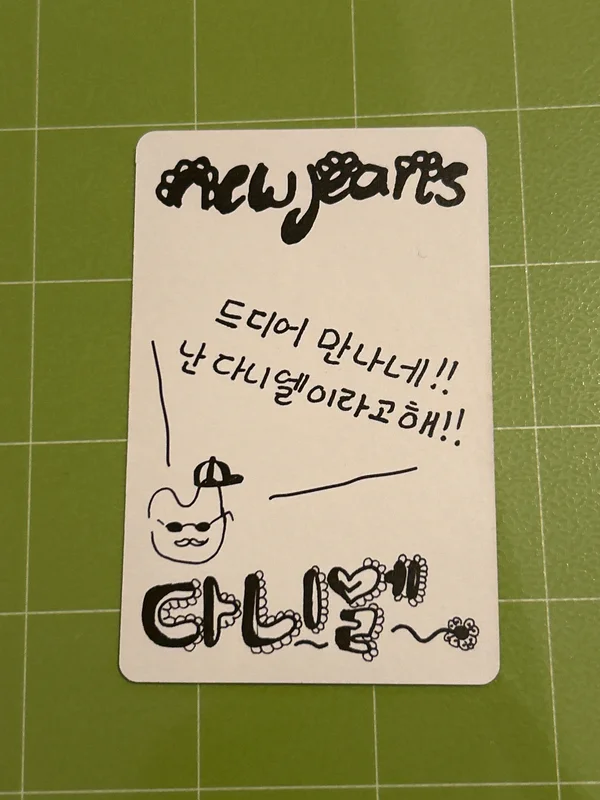 new jeans
드디어 만나네!!
난 다니엘이라고해!!
다니엘